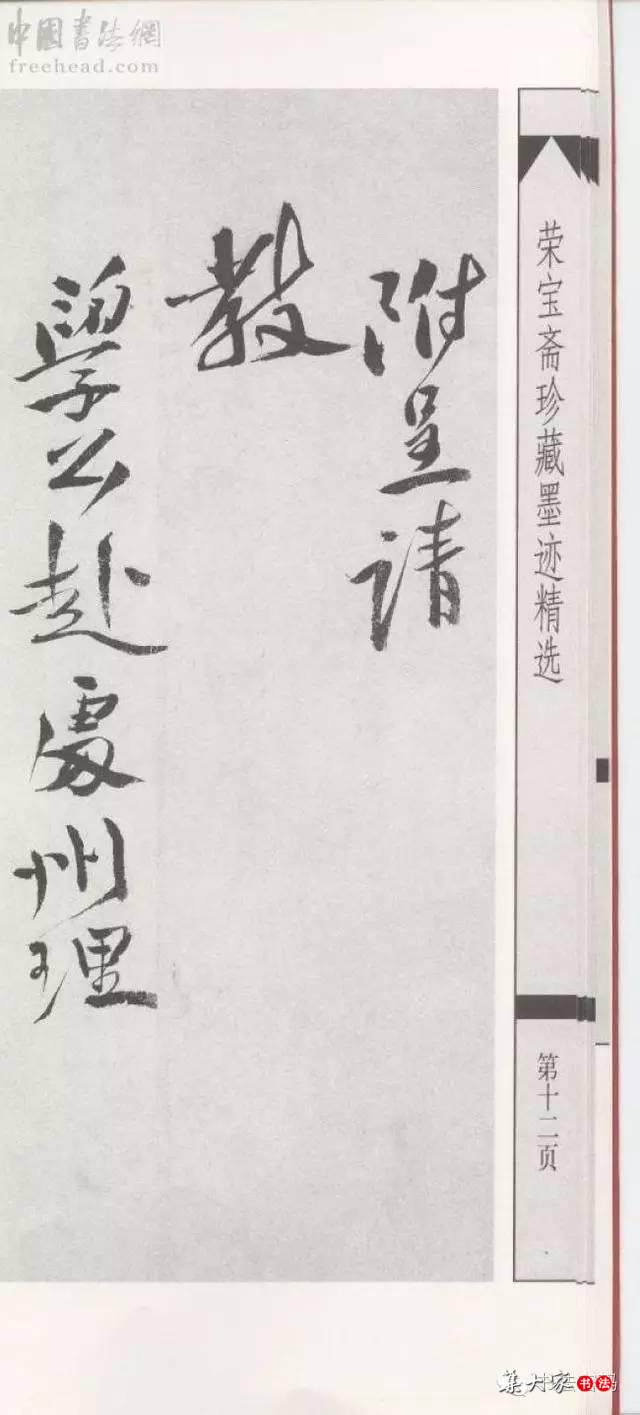 中國书法網
freehead.com
荣宝斋珍藏墨迹精选
第十二页
附呈請
教
學公赴處州理
集大家
书法